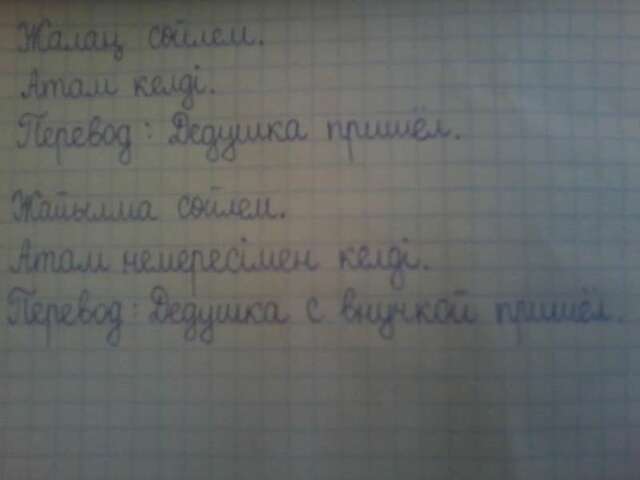 Жалаң сөйлем.
Атам келді.
Перевод: Дедушка пришёл.
Жайылма сөйлем.
Атам немересімен келді.
Перевод: Дедушка с внучкой пришёл.